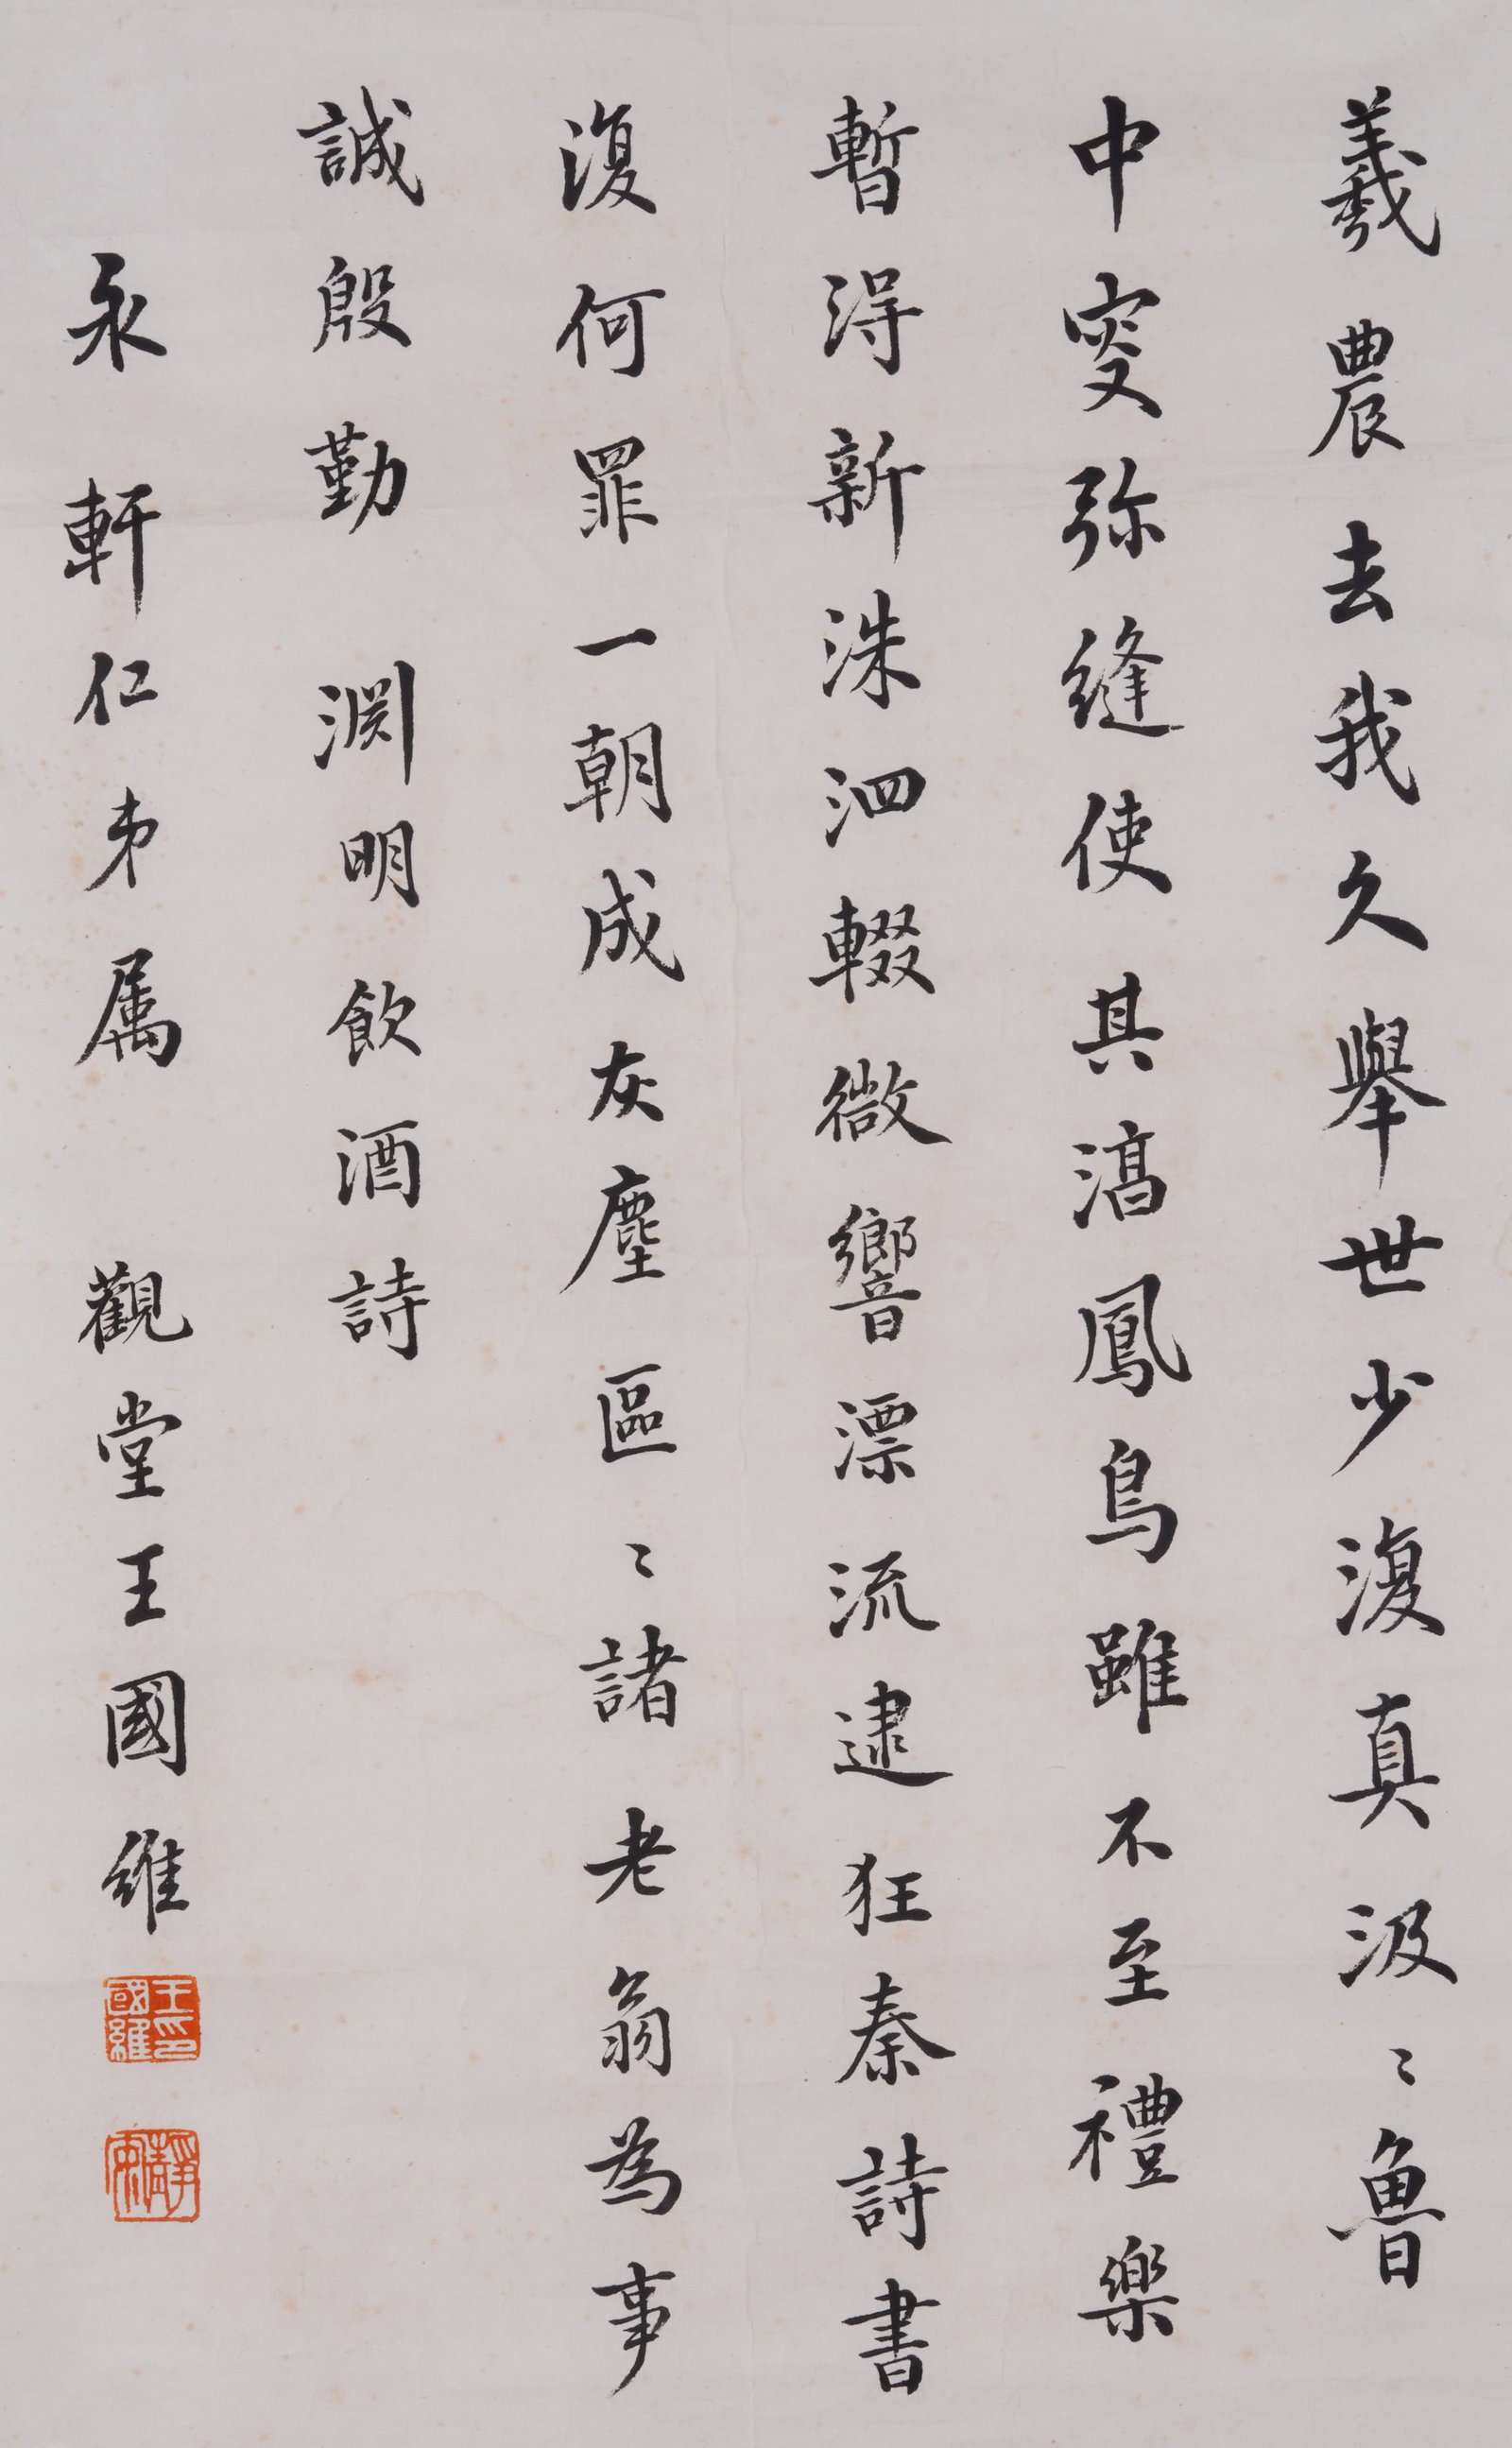 羲農去我久舉世少復真汲〻魯
中叟弥縫使其淳鳳鳥雖不至禮樂
暫淂新洙泗輟微響漂流逮狂秦詩書
復何罪一朝成灰塵區〻諸老翁為事
誠殷勤 渊明飲酒詩
永軒仁弟属 觀堂王國維
王國維印
靜安